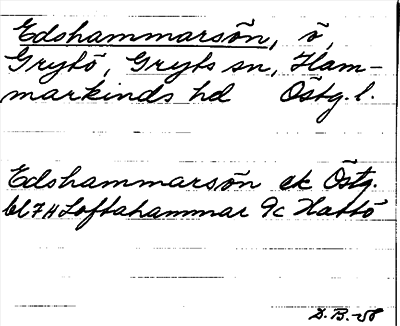 Edshammarsön, ö,
Grytö, Gryts sn, Ham-
markinds hd Östg. l.
Edshammarsön ek Östg.
bl 7H Loftahammar 9c Hattö
D. B. -58